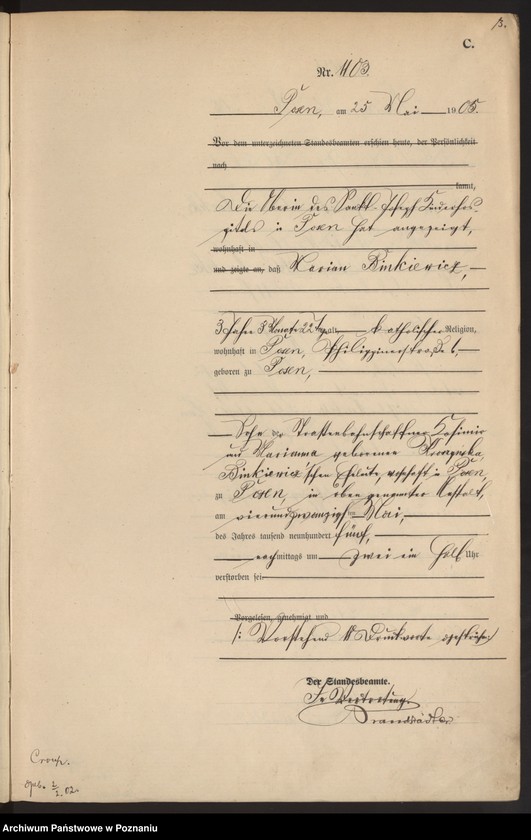 13.
C.
Nr. 1103.
Posen, am 25 Mai 1905.
Vor dem unterzeichneten Standesbeamten erschien heute, der Persönlichkeit
nach
kannt,
Die Oberin des Sankt Joseph Kinderhos-
pitals in Posen hat angezeigt,
wohnhaft in
und zeigte an, daß Marian Binkiewicz,
3 Jahre 3 Monate 22 Tage alt, katholischer Religion,
wohnhaft in Posen, Philippinerstraße
geboren zu Posen,
Sohn der Strassenbahnschaffner Kasimir
und Marianna geborenen
Binkiewicz'schen Eheleute, wohnhaft in Posen,
zu Posen, in oben genannter Anstalt,
am vierundzwanzigsten Mai,
des Jahres tausend neunhundert fünf,
nachmittags um zwei ein halb Uhr
verstorben sei.
Vorgelesen, genehmigt und
/: Vorstehend Druckworte gestrichen
Der Standesbeamte.
In Vertretung.
Brandstädter
Croup.
geb. 2/2. 02.
Archiwum Państwowe w Poznaniu